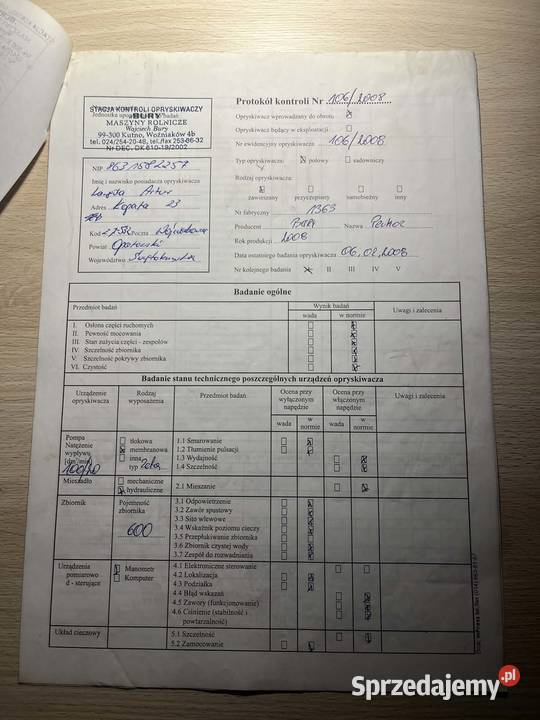 STACJA KONTROLI OPRYSKIWACZY
BURY
MASZYNY ROLNICZE
Wojciech Bury
99-300 Kutno, Woźniaków 4b
tel. 024/254-20-48, tel./fax 253-66-32
Nr DEC. DK 610-18/2002
Protokół kontroli Nr 106/2008
Opryskiwacz wprowadzany do obrotu
Opryskiwacz będący w eksploatacji
Nr ewidencyjny opryskiwacza 106/2008
Typ opryskiwacza: polowy sadowniczy
Rodzaj opryskiwacza:
zawieszany przyczepiany samobieżny inny
Nr fabryczny 1363
Producent Bury Nazwa
Rok produkcji 2008
Data ostatniego badania opryskiwacza 06.02.2008
Nr kolejnego badania II III IV V
NIP 863 158 2257
Imię i nazwisko posiadacza opryskiwacza
Artur
Adres 23
Kod Poczta
Powiat Opatowski
Województwo Świętokrzyskie
Badanie ogólne
Przedmiot badań Wynik badań Uwagi i zalecenia
wada w normie
I. Osłona części ruchomych
II. Pewność mocowania
III. Stan zużycia części - zespołów
IV. Szczelność zbiornika
V. Szczelność pokrywy zbiornika
VI. Czystość
Badanie stanu technicznego poszczególnych urządzeń opryskiwacza
Urządzenie opryskiwacza Rodzaj wyposażenia Przedmiot badań Ocena przy wyłączonym napędzie Ocena przy włączonym napędzie Uwagi i zalecenia
wada w normie wada w normie
Pompa Natężenie wypływu [dm³/min] 100/20
tłokowa
membranowa
inna
typ
1.1 Smarowanie
1.2 Tłumienie pulsacji
1.3 Wydajność
1.4 Szczelność
Mieszadło mechaniczne
hydrauliczne
2.1 Mieszanie
Zbiornik Pojemność zbiornika
600
3.1 Odpowietrzenie
3.2 Zawór spustowy
3.3 Sito wlewowe
3.4 Wskaźnik poziomu cieczy
3.5 Przepłukiwanie zbiornika
3.6 Zbiornik czystej wody
3.7 Zespół do rozwadniania
Urządzenia pomiarowo d - sterujące
Manometr
Komputer
4.1 Elektroniczne sterowanie
4.2 Lokalizacja
4.3 Podziałka
4.4 Błąd wskazań
4.5 Zawory (funkcjonowanie)
4.6 Ciśnienie (stabilność i powtarzalność)
Układ cieczowy
5.1 Szczelność
5.2 Zamocowanie
Sprzedajemy.pl